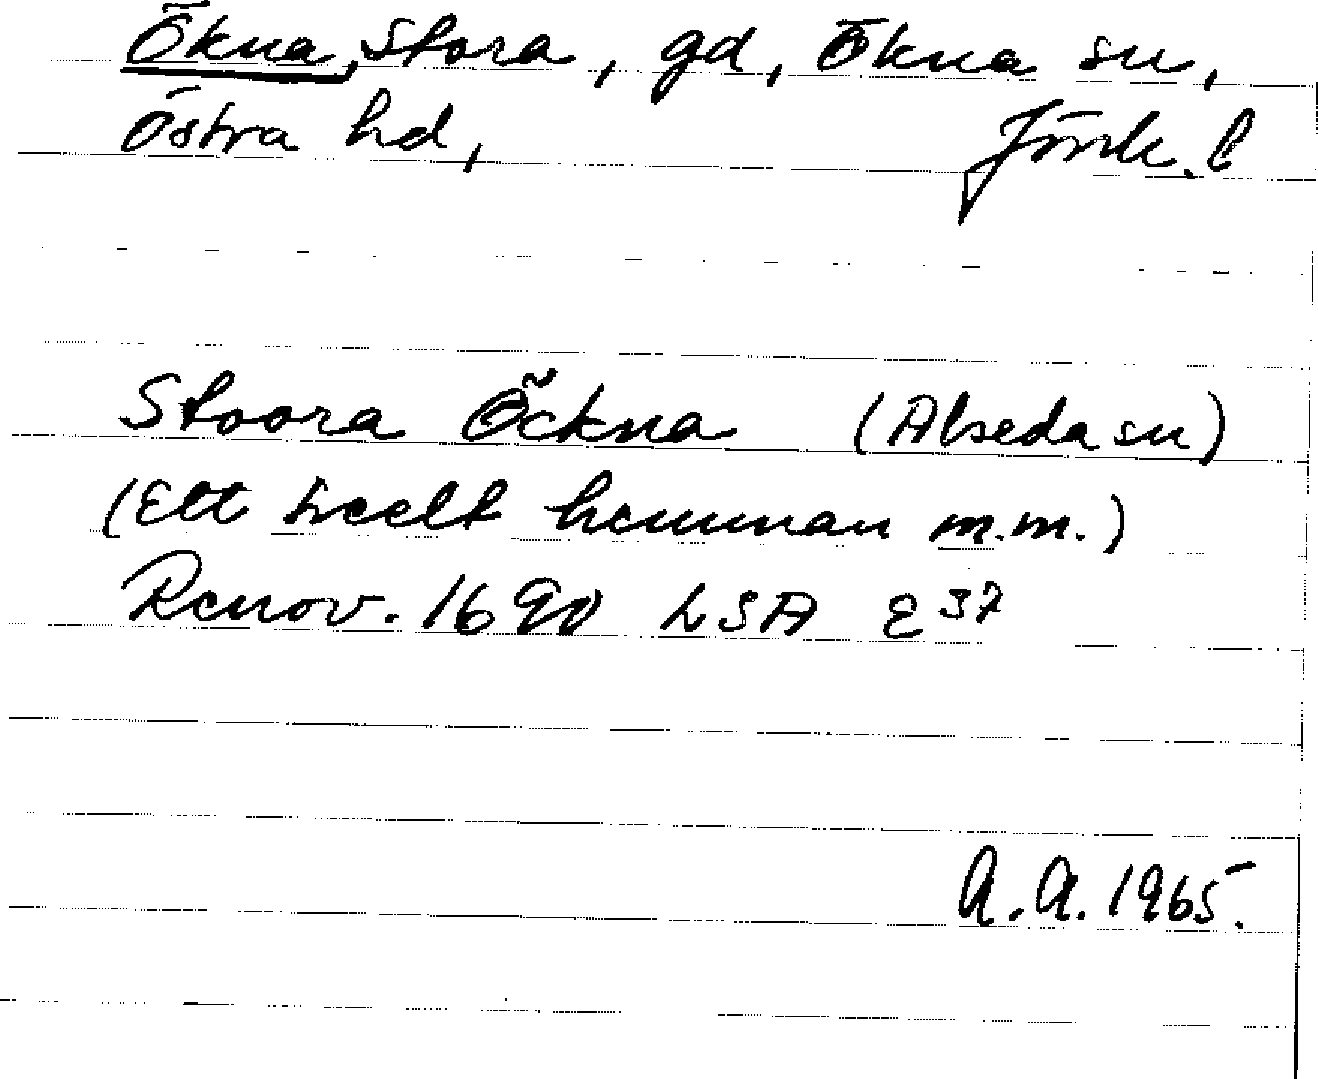 Ökna, Stora, gd, Ökna sn,
Östra hd, Jönk. l
Stoora Öckna (Alseda sn)
(Ett heelt hemman m.m.)
Renov. 1690 LSA E 37
A.A. 1965.